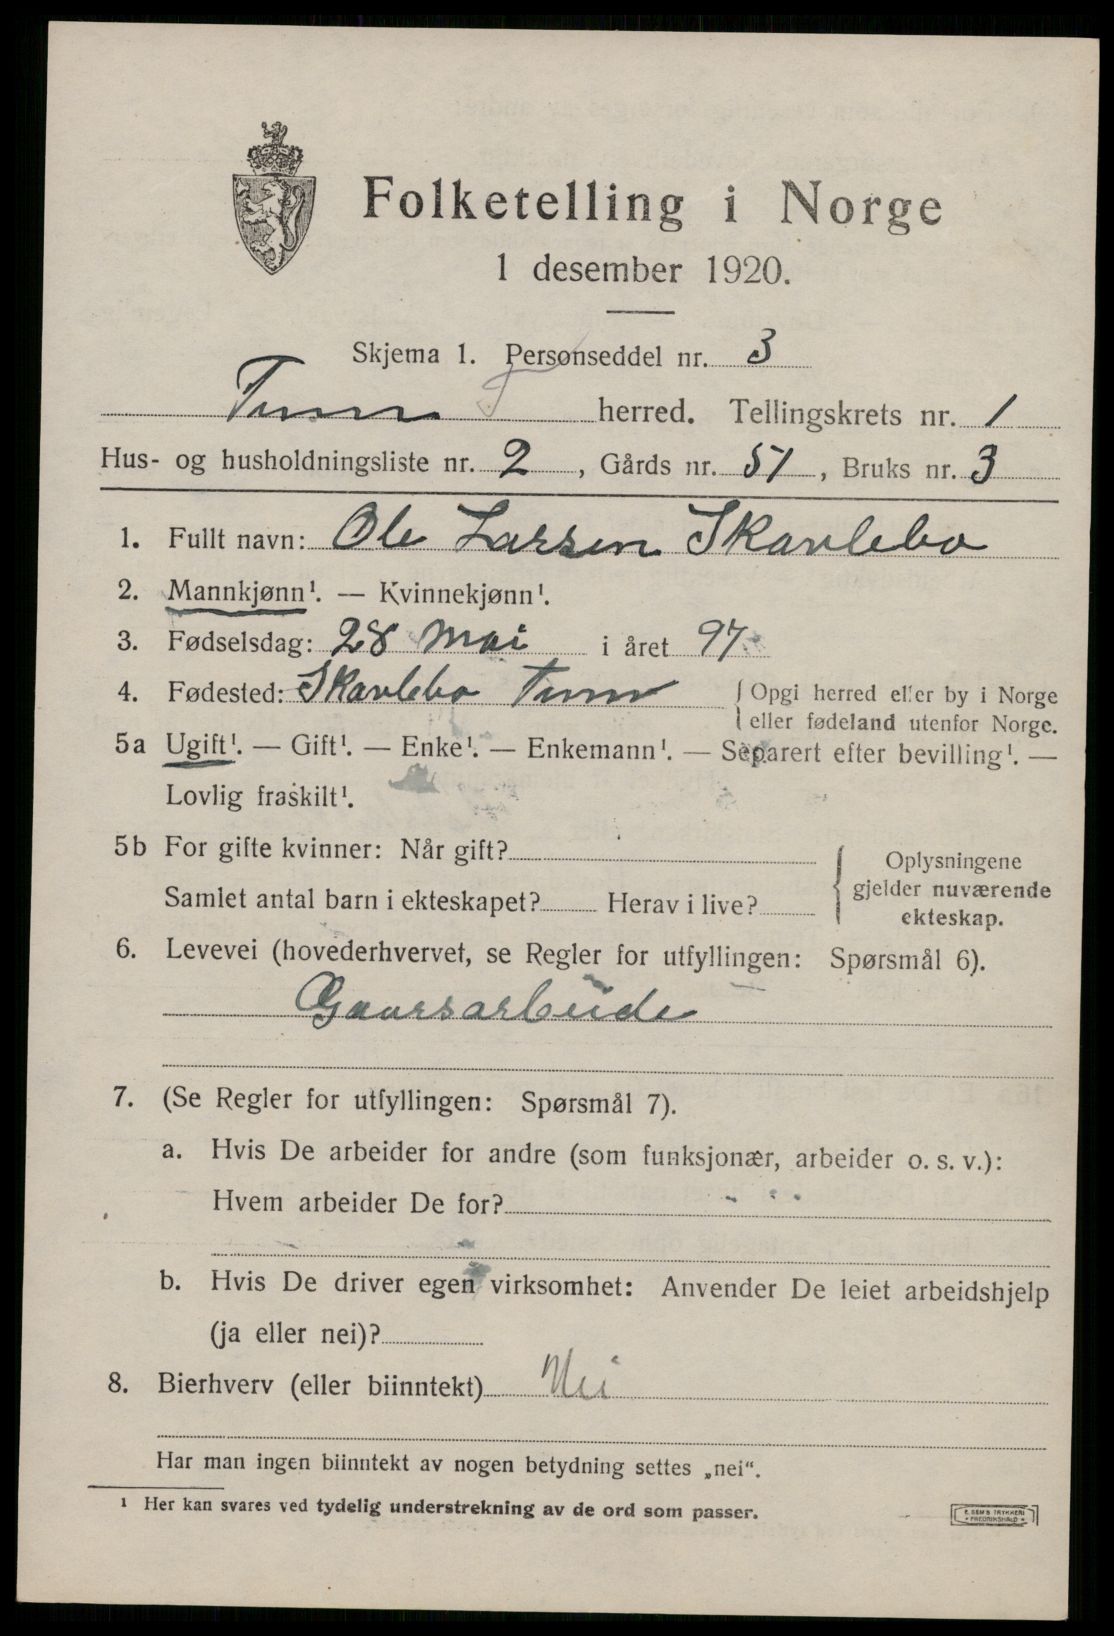 Folketelling i Norge
1 desember 1920.
Skjema 1. Personseddel nr. 3
Tune herred. Tellingskrets nr. 1
Hus- og husholdningsliste nr. 2, Gårds nr. 51, Bruks nr. 3
1. Fullt navn: Ole Larsen Skavlebo
2. Mannkjønn¹. — Kvinnekjønn¹.
3. Fødselsdag: 28 Mai i året 97
4. Fødested: Skavlebo Tune
Opgi herred eller by i Norge
eller fødeland utenfor Norge.
5a Ugift¹. — Gift¹. — Enke¹. — Enkemann¹. — Separert efter bevilling¹. —
Lovlig fraskilt¹.
5b For gifte kvinner: Når gift?
Samlet antal barn i ekteskapet? Herav i live?
Oplysningene
gjelder nuværende
ekteskap.
6. Levevei (hovederhvervet, se Regler for utfyllingen: Spørsmål 6).
Gaarsarbeide
7. (Se Regler for utfyllingen: Spørsmål 7).
a. Hvis De arbeider for andre (som funksjonær, arbeider o. s. v.):
Hvem arbeider De for?
b. Hvis De driver egen virksomhet: Anvender De leiet arbeidshjelp
(ja eller nei)?
8. Bierhverv (eller biinntekt) Nei
Har man ingen biinntekt av nogen betydning settes „nei“.
¹ Her kan svares ved tydelig understrekning av de ord som passer.
E. SEM'S TRYKKERI
• FREDRIKSHALD •